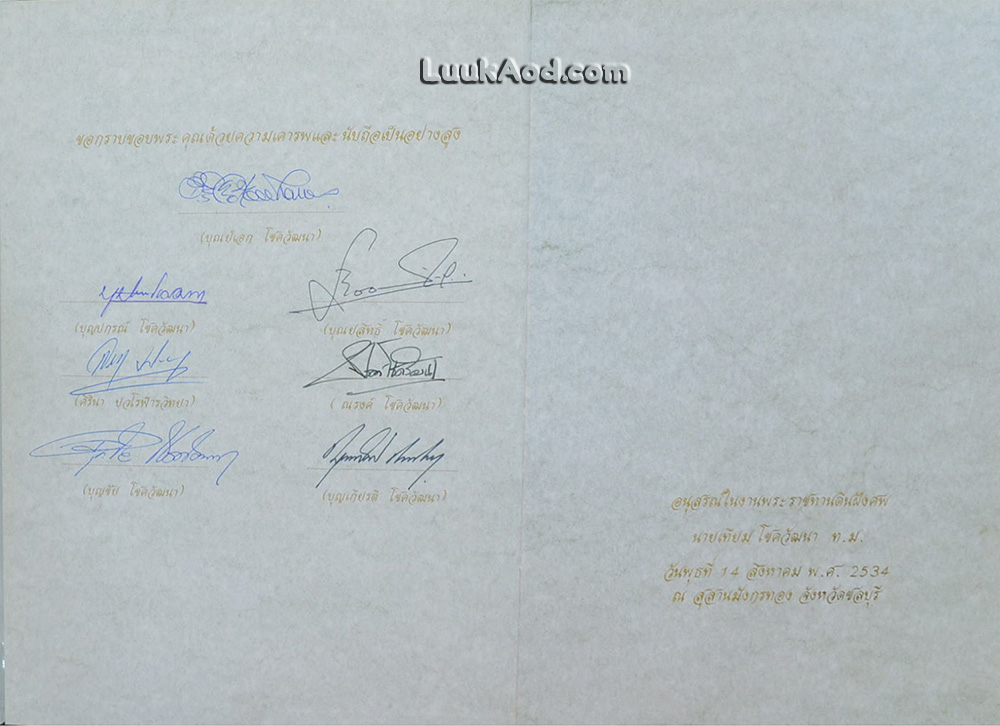 LuukAod.com
ขอกราบขอบพระคุณด้วยความเคารพและนับถือเป็นอย่างสูง
(บุณย์เอก โชควัฒนา)
(บุญปกรณ์ โชควัฒนา)
(บุณยสิทธิ์ โชควัฒนา)
(ศิรินา ปวโรฬารวิทยา)
(ณรงค์ โชควัฒนา)
(บุญชัย โชควัฒนา)
(บุญเกียรติ โชควัฒนา)
อนุสรณ์ในงานพระราชทานดินฝังศพ
นายเทียม โชควัฒนา ท.ม.
วันพุธที่ 14 สิงหาคม พ.ศ. 2534
ณ สุสานมังกรทอง จังหวัดชลบุรี